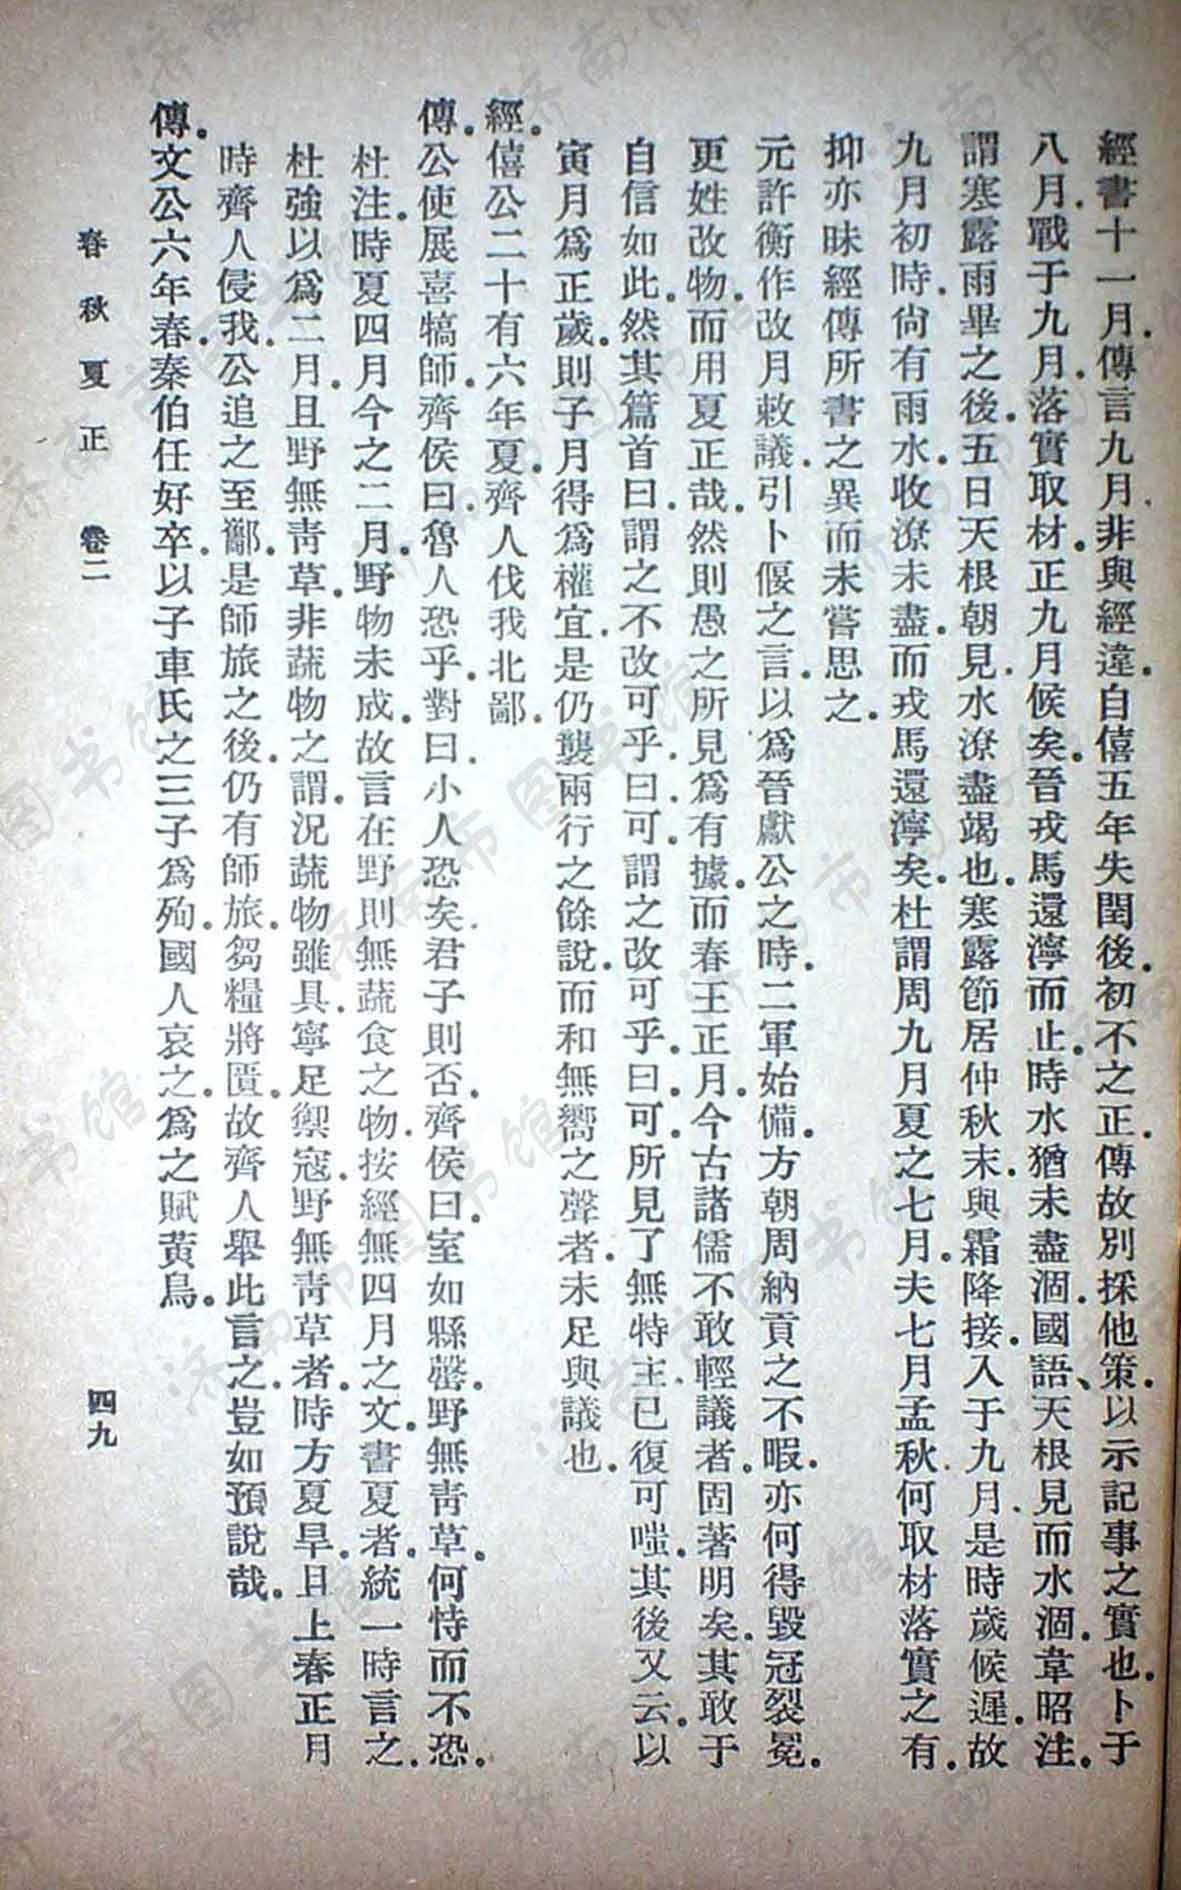 經書十一月。傳言九月。非與經違。自僖五年失閏後。初不之正。傳故別採他策。以示記事之實也。卜于
八月。戰于九月。落實取材。正九月候矣。晉戎馬還濘而止。時水猶未盡涸。國語、天根見而水涸。韋昭注。
謂寒露雨畢之後。五日天根朝見。水潦盡竭也。寒露節居仲秋末。與霜降接。入于九月。是時歲候遲。故
九月初時。尙有雨水。收潦未盡。而戎馬還濘矣。杜謂周九月夏之七月。夫七月孟秋。何取材落實之有。
抑亦昧經傳所書之異而未嘗思之。
元許衡作改月敕議。引卜偃之言。以爲晉獻公之時。二軍始備。方朝周納貢之不暇。亦何得毀冠裂冕。
更姓改物。而用夏正哉。然則愚之所見爲有據。而春王正月。今古諸儒不敢輕議者。固著明矣。其敢于
自信如此。然其篇首曰。謂之不改可乎。曰可。謂之改可乎。曰可。所見了無特主。已復可嗤。其後又云。以
寅月爲正歲。則子月得爲權宜。是仍襲兩行之餘說。而和無嚮之聲者。未足與議也。
經。僖公二十有六年夏。齊人伐我北鄙。
傳。公使展喜犒師。齊侯曰。魯人恐乎。對曰。小人恐矣。君子則否。齊侯曰。室如縣罄。野無靑草。何恃而不恐。
杜注。時夏四月。今之二月。野物未成。故言在野則無蔬食之物。按經無四月之文。書夏者。統一時言之。
杜強以爲二月。且野無靑草。非蔬物之謂。況蔬物雖具。寧足禦寇。野無靑草者。時方夏旱。日上春正月
時齊人侵我。公追之至酅。是師旅之後。仍有師旅。芻糧將匱。故齊人舉此言之。豈如預說哉。
傳。文公六年春。秦伯任好卒。以子車氏之三子爲殉。國人哀之。爲之賦黃鳥。
春秋夏正 卷二 四九